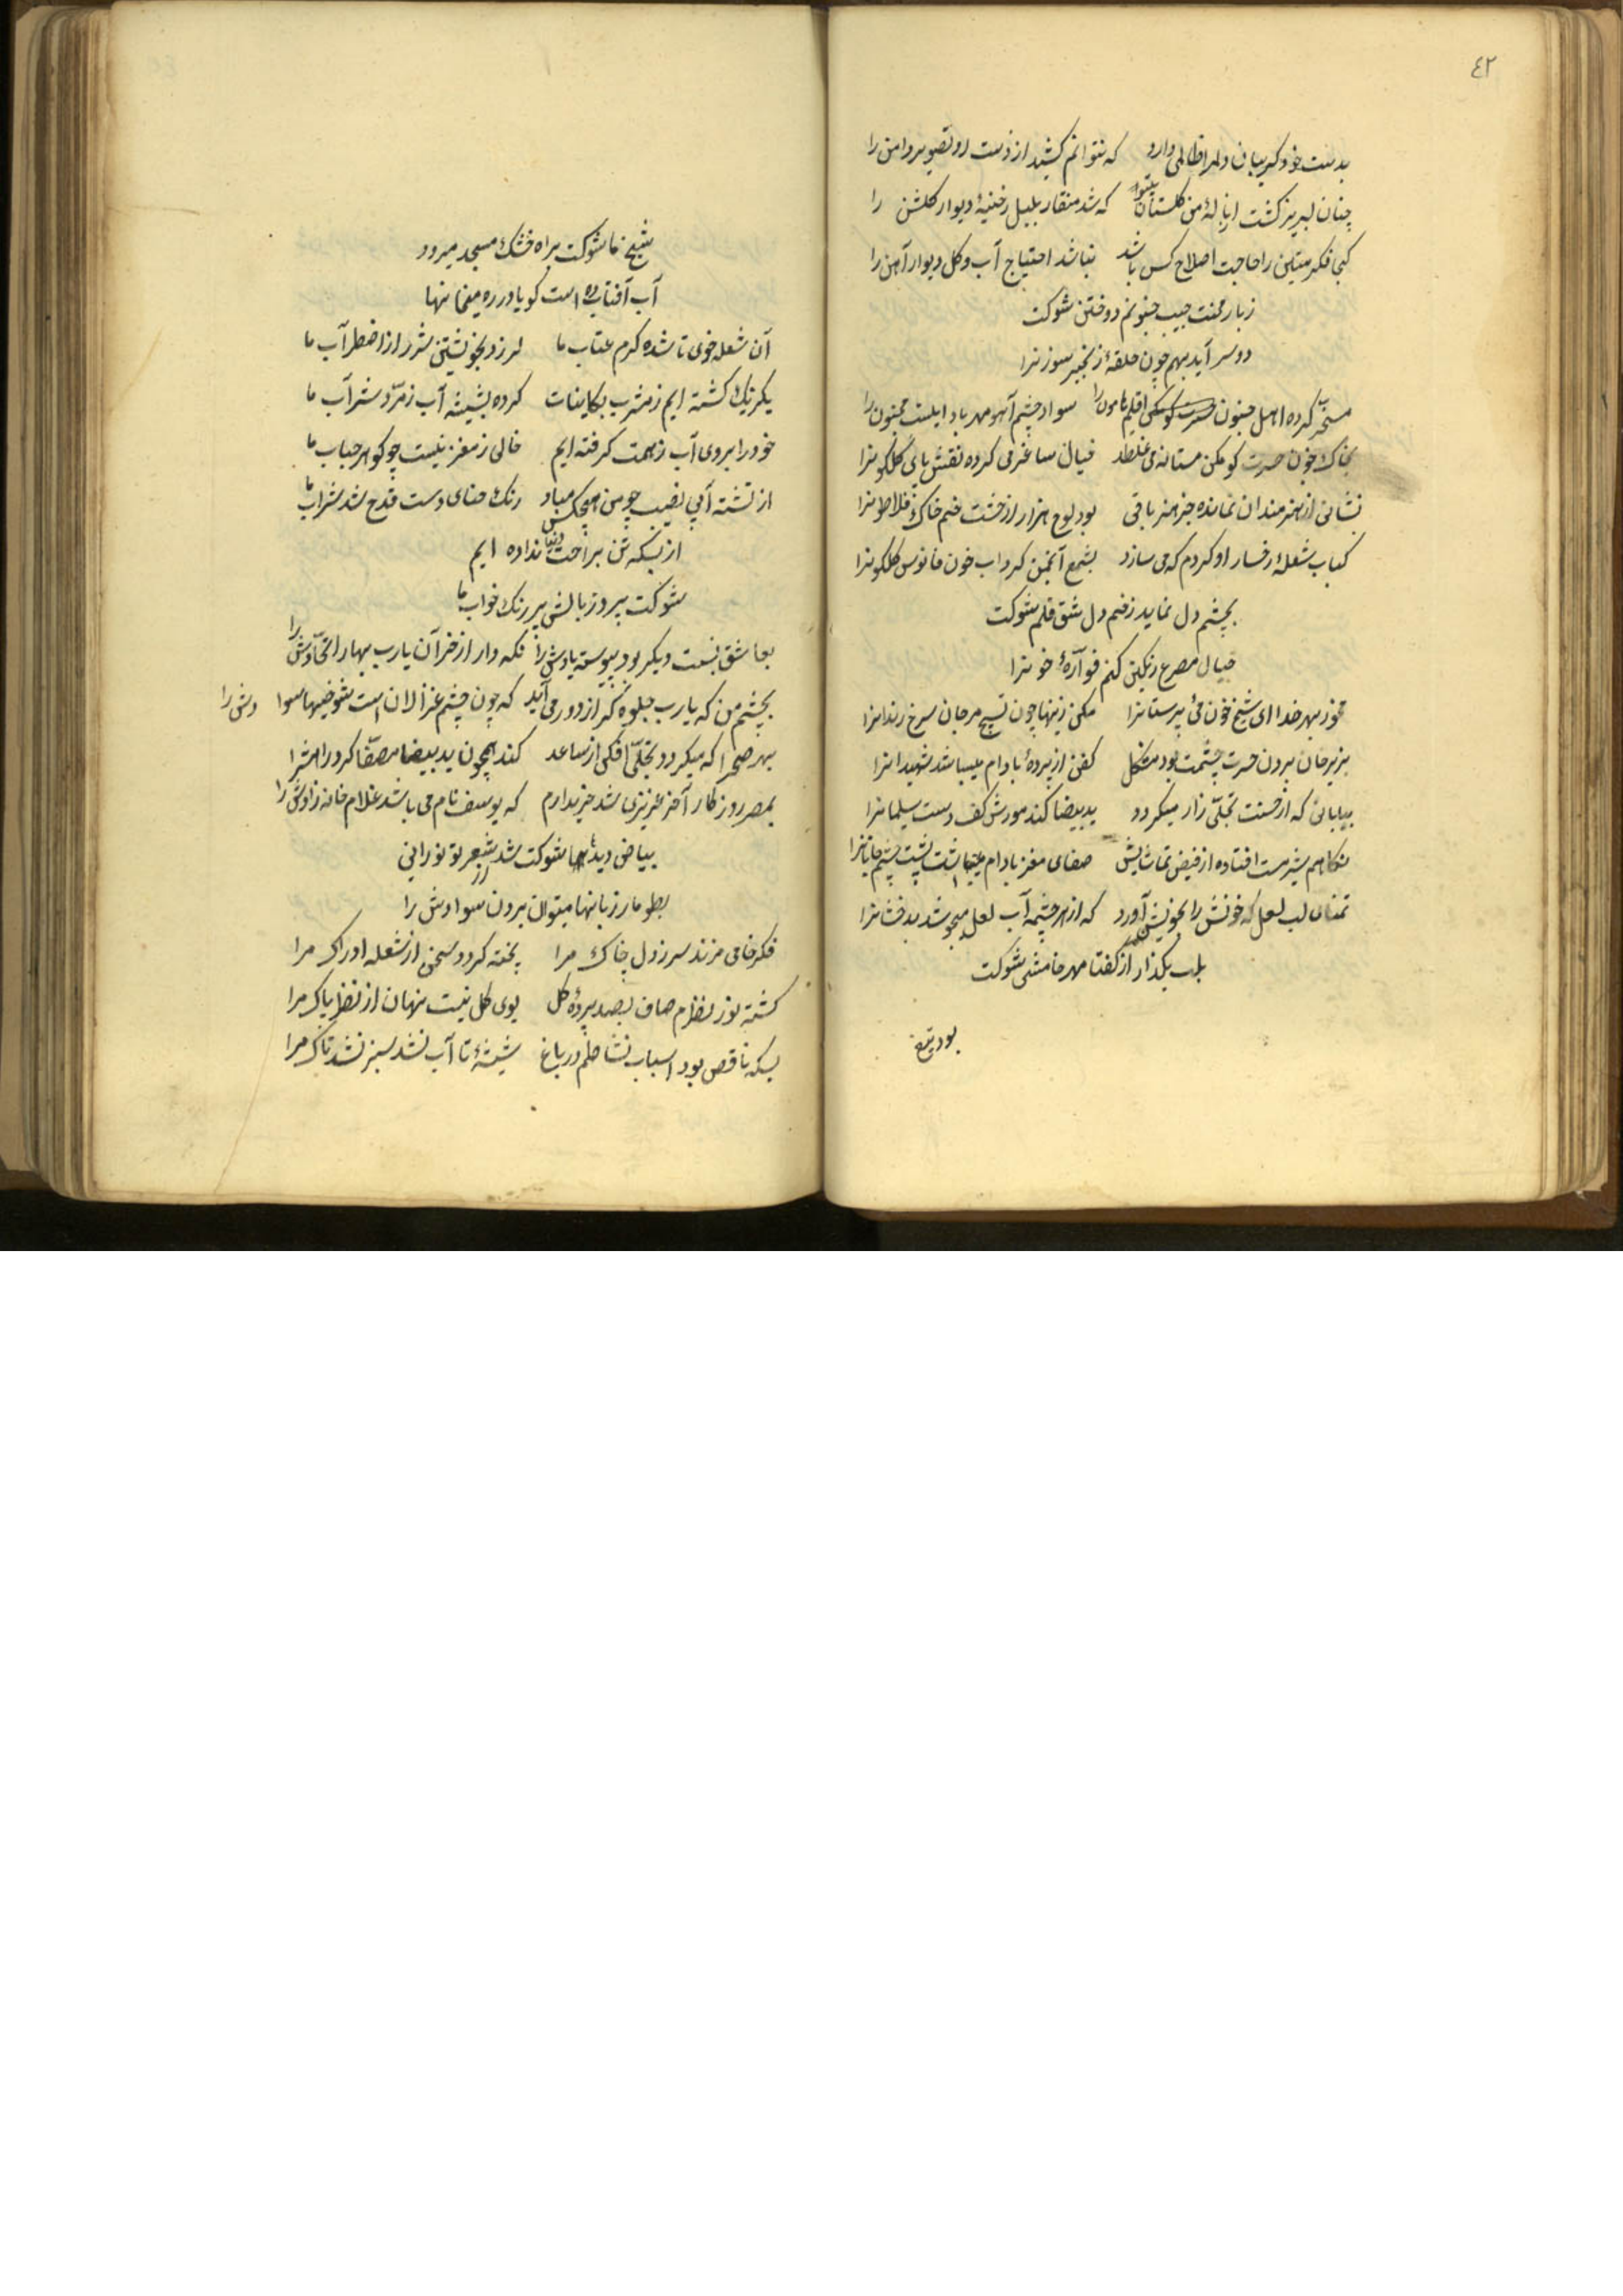 ٤٢
بدست خود کریبان دلم را ظالمی دارد که نتوانم کشید از دست او تصویر دامن را
چنان لبریز کشت از نالهٔ من کلستان که شد منقار بلبل رخنهٔ دیوار کلشن را
کجا فکر متین را حاجت اصلاح کس باشد نباشد احتیاج آب و کل دیوار آهن را
زبار منت جیب جنونم دوختن شوکت
دو سر آید بهم چون حلقهٔ زنجیر سوزنرا
مسخر کرده اهل جنون اقلیم هامون را سواد چشم آهو مهر بادا مجنون را
بخاک و خون حسرت کوهکن مستانه می غلطد خیال ساغر می کرده نقش پای گلگونرا
نشانی از هنرمندان نمانده جز هنر باقی بود لوح مزار از خشت خم خاک فلاطونرا
کباب شعلهٔ رخسار او کردم که می سازد بشمع انجمن کرداب خون فانوس کلکونرا
بچشم دل نماید زخم دل شق قلم شوکت
خیال مصرع رنکین کنم فوارهٔ خونرا
مخور بهر خدا ای شیخ خون می پرستانرا مکن زینها چون تسبیح مرجان سرخ دندانرا
بزیر خاک بردن حسرت چشمت بود مشکل کفن از پردهٔ بادام میباشد شهیدانرا
بیابانی که از حسنت تجلی زار میکردد ید بیضا کند مورش کف دست سلیمانرا
نکاهم شیرمست افتاده از فیض تماشایش صفای مغز بادام پشت چشم
تمنای لب لعل که خونش را بجوش آورد که از هر چشمه آب لعل میجوشد بدخشانرا
بلب بکذار از کفتا مهر خامشی شوکت
بود تیغ
شیخ ما شوکت براه خشک مسجد میرود
آب آفتاب ده است کویا در ره میخانها
آن شعله خوی تا شده کرم عتاب ما لرزد بخویشتن شرر از اضطراب ما
یکرنک کشته ایم ز مشرب بکاینات کرده بشیشه آب زمرد شراب ما
خود را بروی آب ز همت کرفته ایم خالی ز مغز نیست چو کوهر حباب ما
از تشنه آبی نصیب چو من هیچکس مباد رنک حنای دست قدح شد شراب ما
از بسکه تن براحت دنیا نداده ایم
شوکت پرد ز بالش پر رنک خواب ما
بعاشق نسبت دیکر بود پیوسته یادش را نکه دار از خزان یارب بهار اتحادش را
بچشم من که یارب جلوه کر از دور می آید که چون چشم غزالان است شوخیها سوادش را
بهر صحرا که میکردد تجلی افکن از ساعد کند همچون ید بیضا مصفا کرد راهش را
بمصر روزکار آخر عزیزی شد خریدارم که یوسف نام می باشد غلام خانه زادش را
بیاض دیدهٔ ما شوکت شد از شعر تو نورانی
بطومار زبانها میتوان بردن سوادش را
فکر خامی مزند سر ز دل چاک مرا پخته کردد سخن از شعله ادراک مرا
کشته نور نظرم صاف بصد پردهٔ کل بوی کل نیست نهان از نظر پاک مرا
بسکه ناقص بود اسباب نشاطم در باغ شیشهٔ تا آب نشد سبز نشد تاک مرا